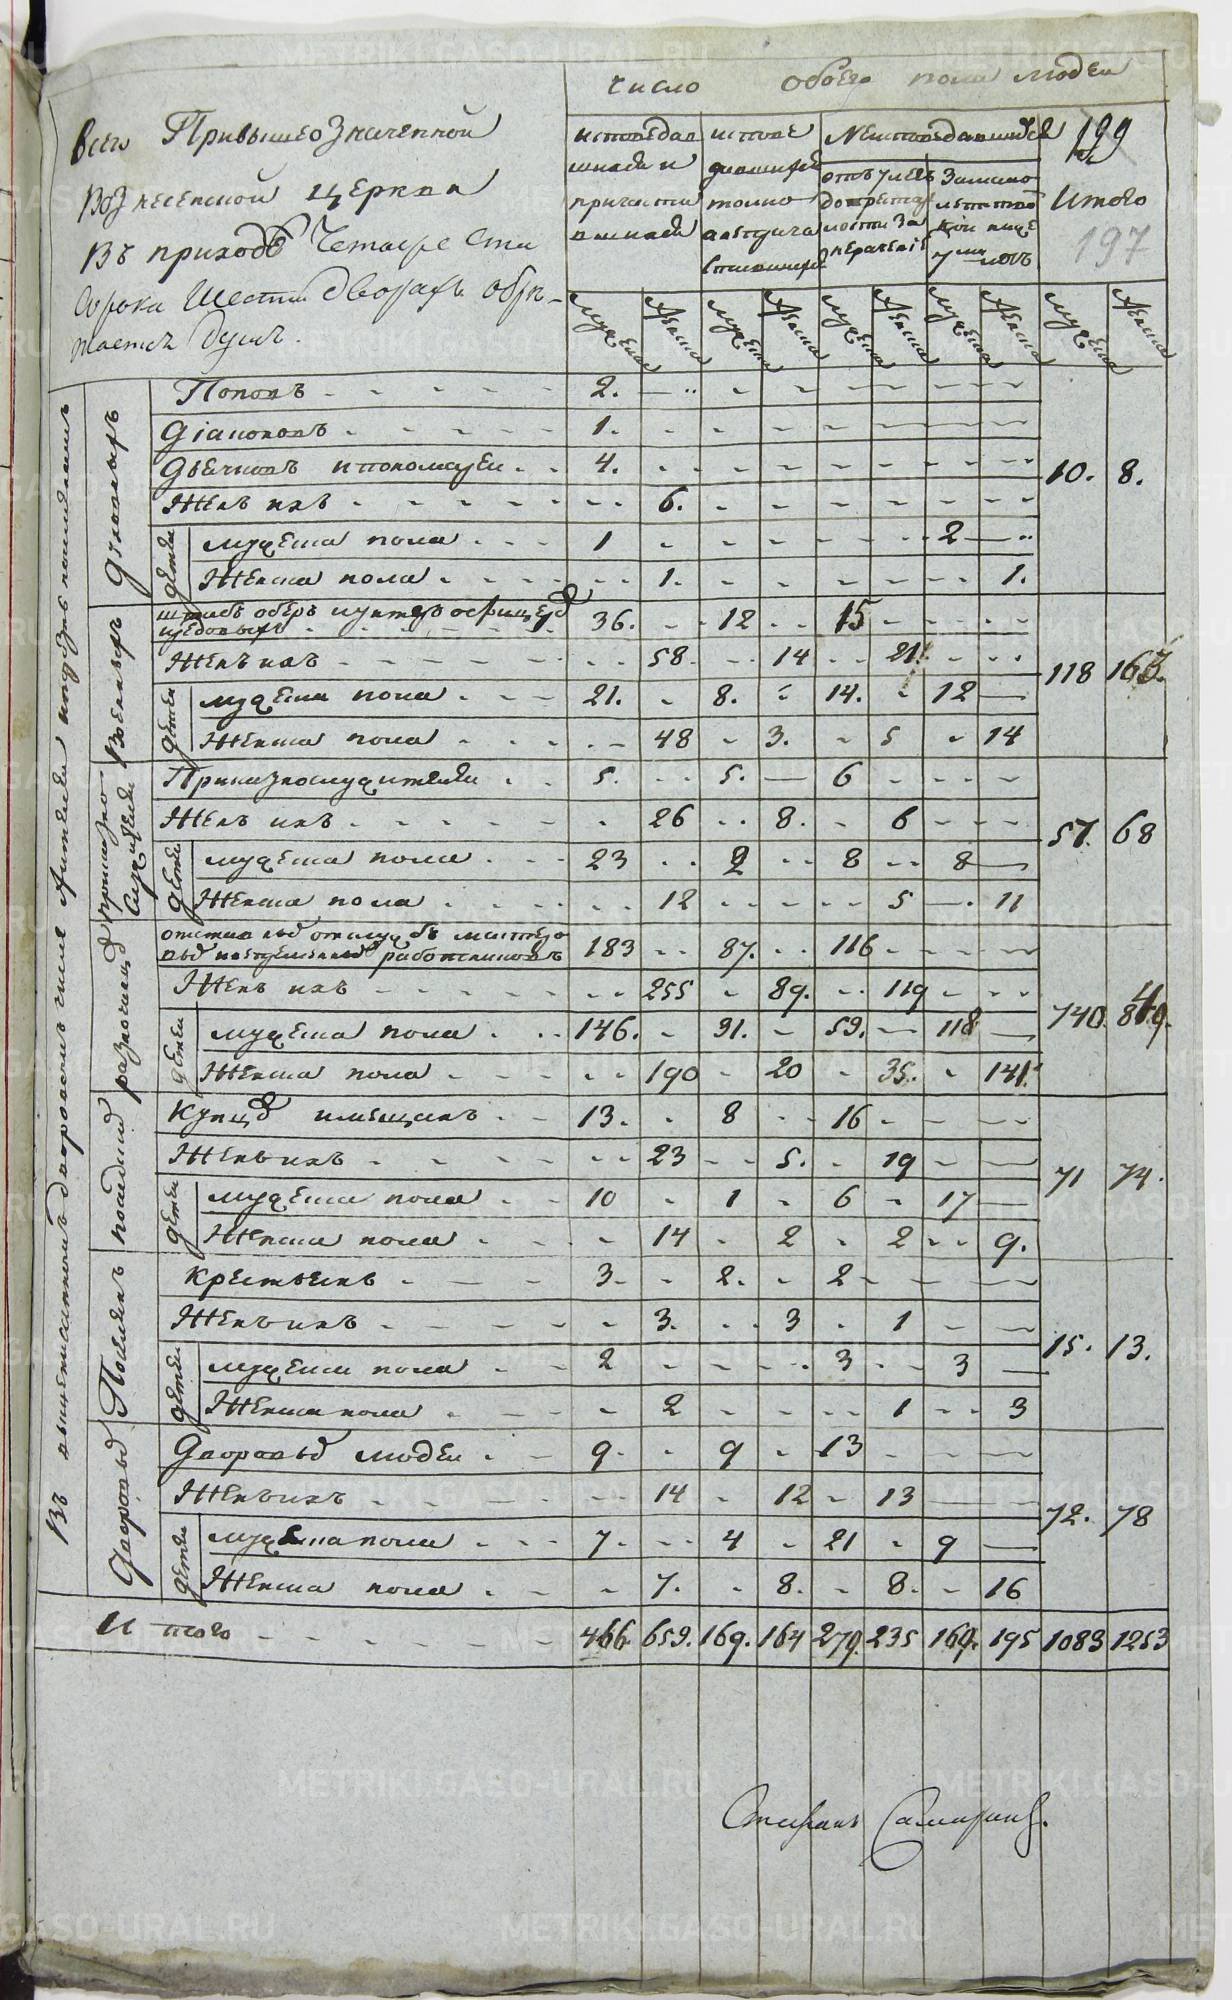 число обоего пола людей
всего Привышеозначенной
Вознесенской церкви
Въ приходѣ Четыре ста
сорока шести дворахъ обре-
тается душъ.
исповедав
шихся и
причасти
вшихся
испове
давшихся
токмо
а неприча
стившихся
Неисповедавшихся
отъ 7 летъ
до престар
лости за
нерачениѣ
Замало
летствомъ
кои ниже
7ми летъ
199
Итого
197
мужеска женска мужеска женска мужеска женска мужеска женска мужеска женска
Въ вышеписанномъ дворовомъ числе Жители
Духовныхъ
Поповъ 2.
Дiаконовъ 1.
Дьячковъ и пономарей 4. 10. 8.
Женъ ихъ 6.
дѣтей мужеска пола 1 2
Женска пола 1. 1.
Военныхъ
штабъ оберъ и унтеръ офицеръ
и рядовыхъ 36. 12 15
Женъ ихъ 58. 14 21. 118 167.
дѣтей мужеска пола 21. 8. 14. 12
Женска пола 48 3. 5 14
приказно
служителей
Приказнослужителей 5. 5. 6
Женъ ихъ 26 8. 6 57. 68
дѣтей мужеска пола 23 2 8 8
Женска пола 12 5 11
разночинцовъ
183 87. 116
Женъ ихъ 255 89. 119 740. 849.
дѣтей мужеска пола 146. 31. 59. 118
Женска пола 190 20 35. 141.
посадскихъ
Купцовъ и мещанъ 13. 8 16
Женъ ихъ 23 5. 19 71 74.
дѣтей мужеска пола 10 1 6 17
Женска пола 14 2 2 9.
Поселянъ
Крестьянъ 3. 2. 2
Женъ ихъ 3. 3 1 15. 13.
дѣтей мужеска пола 2 3 3
Женска пола 2 1 3
Дворовыхъ
Дворовыхъ людей 9. 9 13
Женъ ихъ 14 12 13 72. 78
дѣтей мужеска пола 7. 4 21 9
Женска пола 7. 8. 8. 16
Итого 466. 659. 169. 164 279. 235 169. 195 1083 1253
METRIKI.GASO-URAL.RU